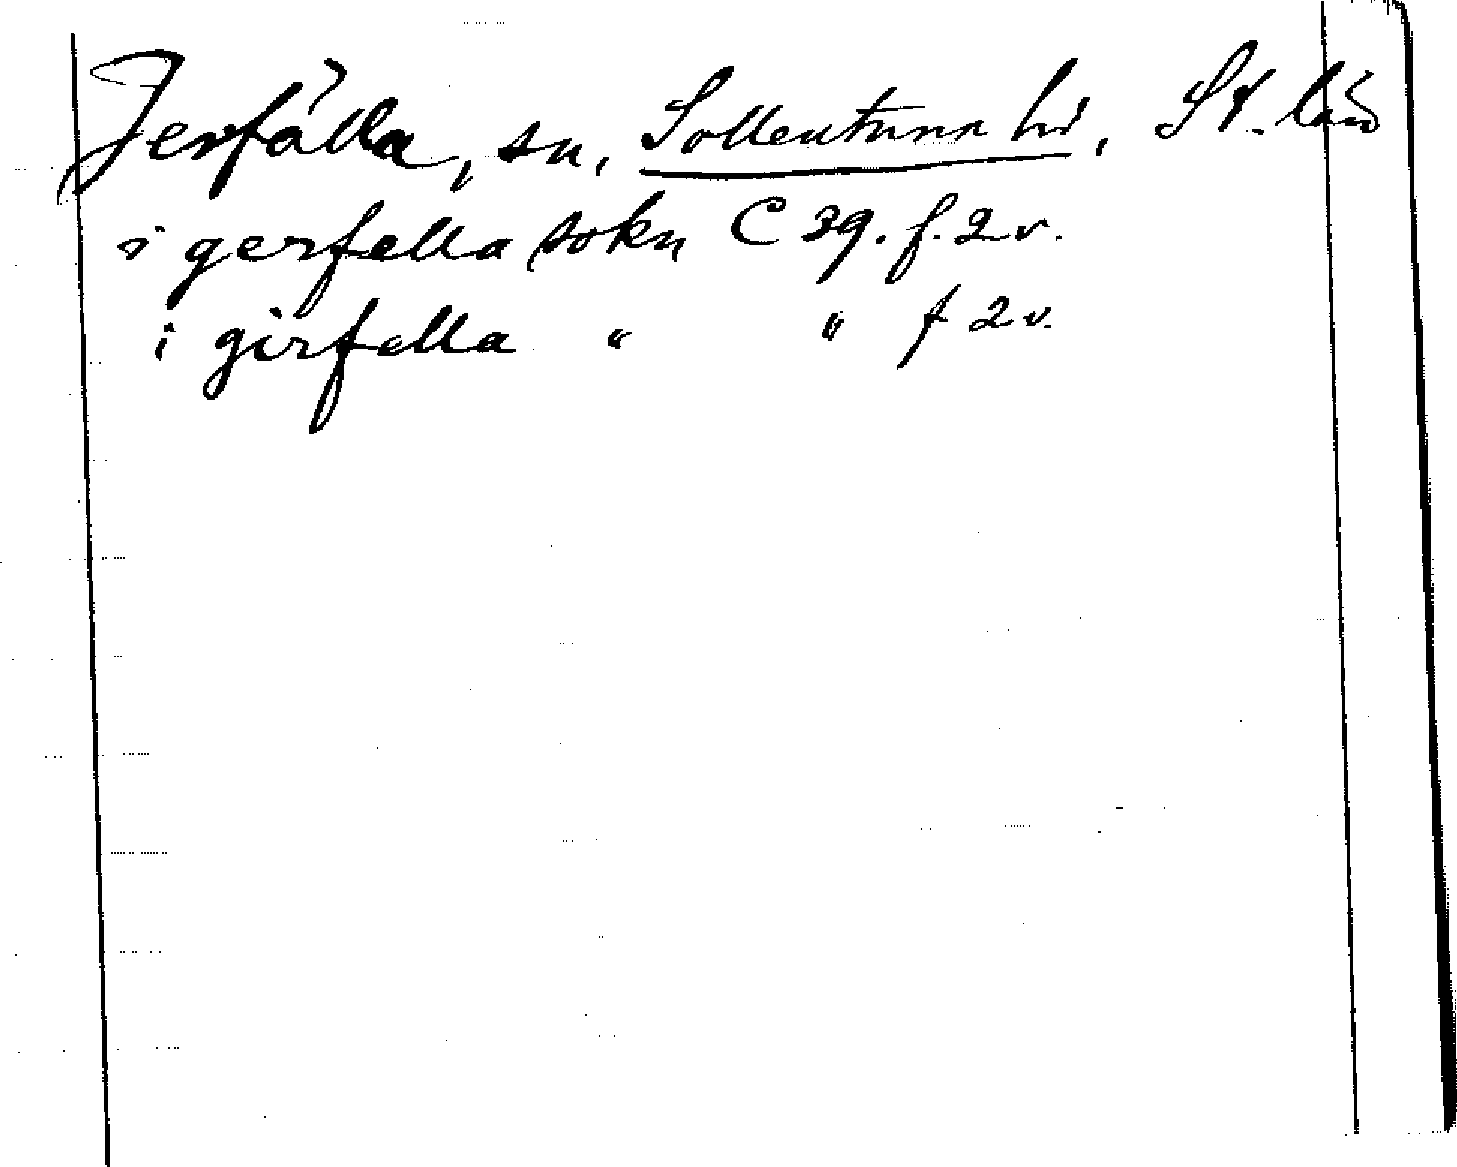 Jerfälla, sn, Sollentuna hd, St. län
i gerfella sokn C 39. f. 2 v.
i girfella " " f 2 v.